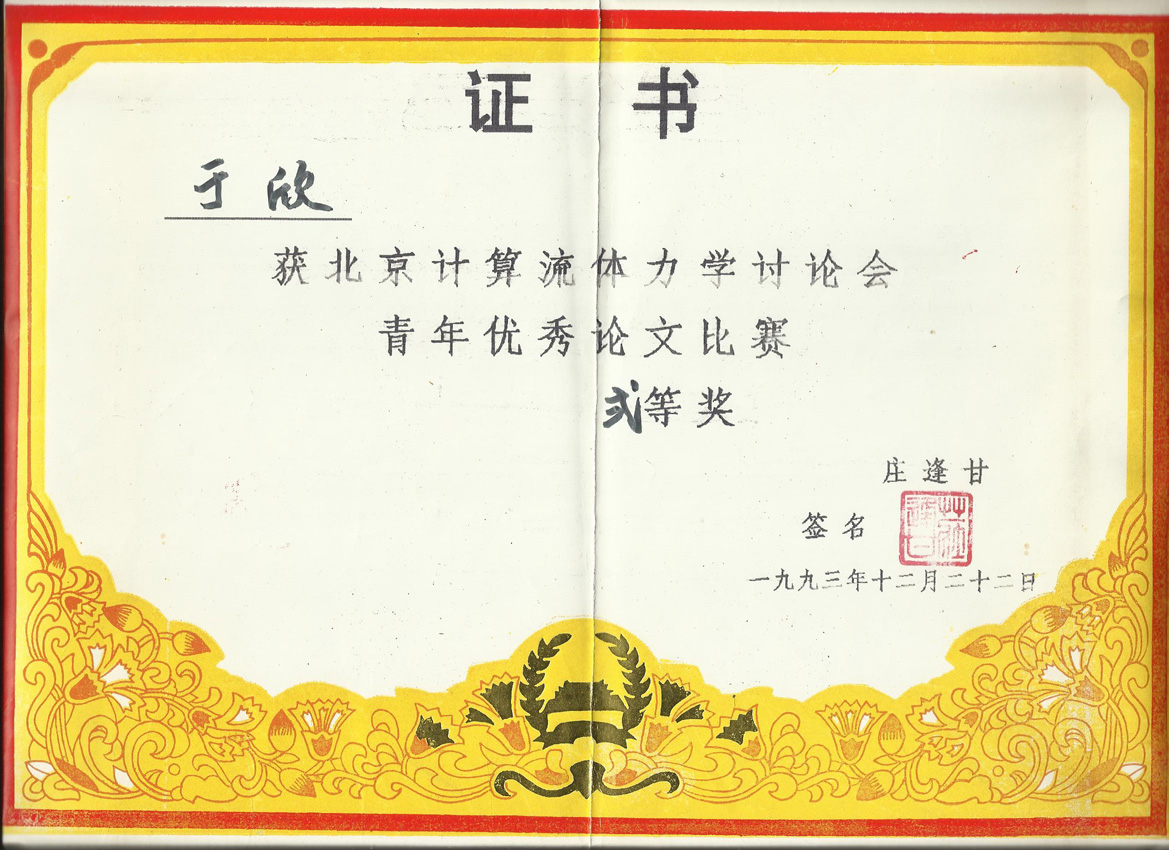 证 书
于欣
获北京计算流体力学讨论会
青年优秀论文比赛
弍等奖
庄逢甘
签名
一九九三年十二月二十二日